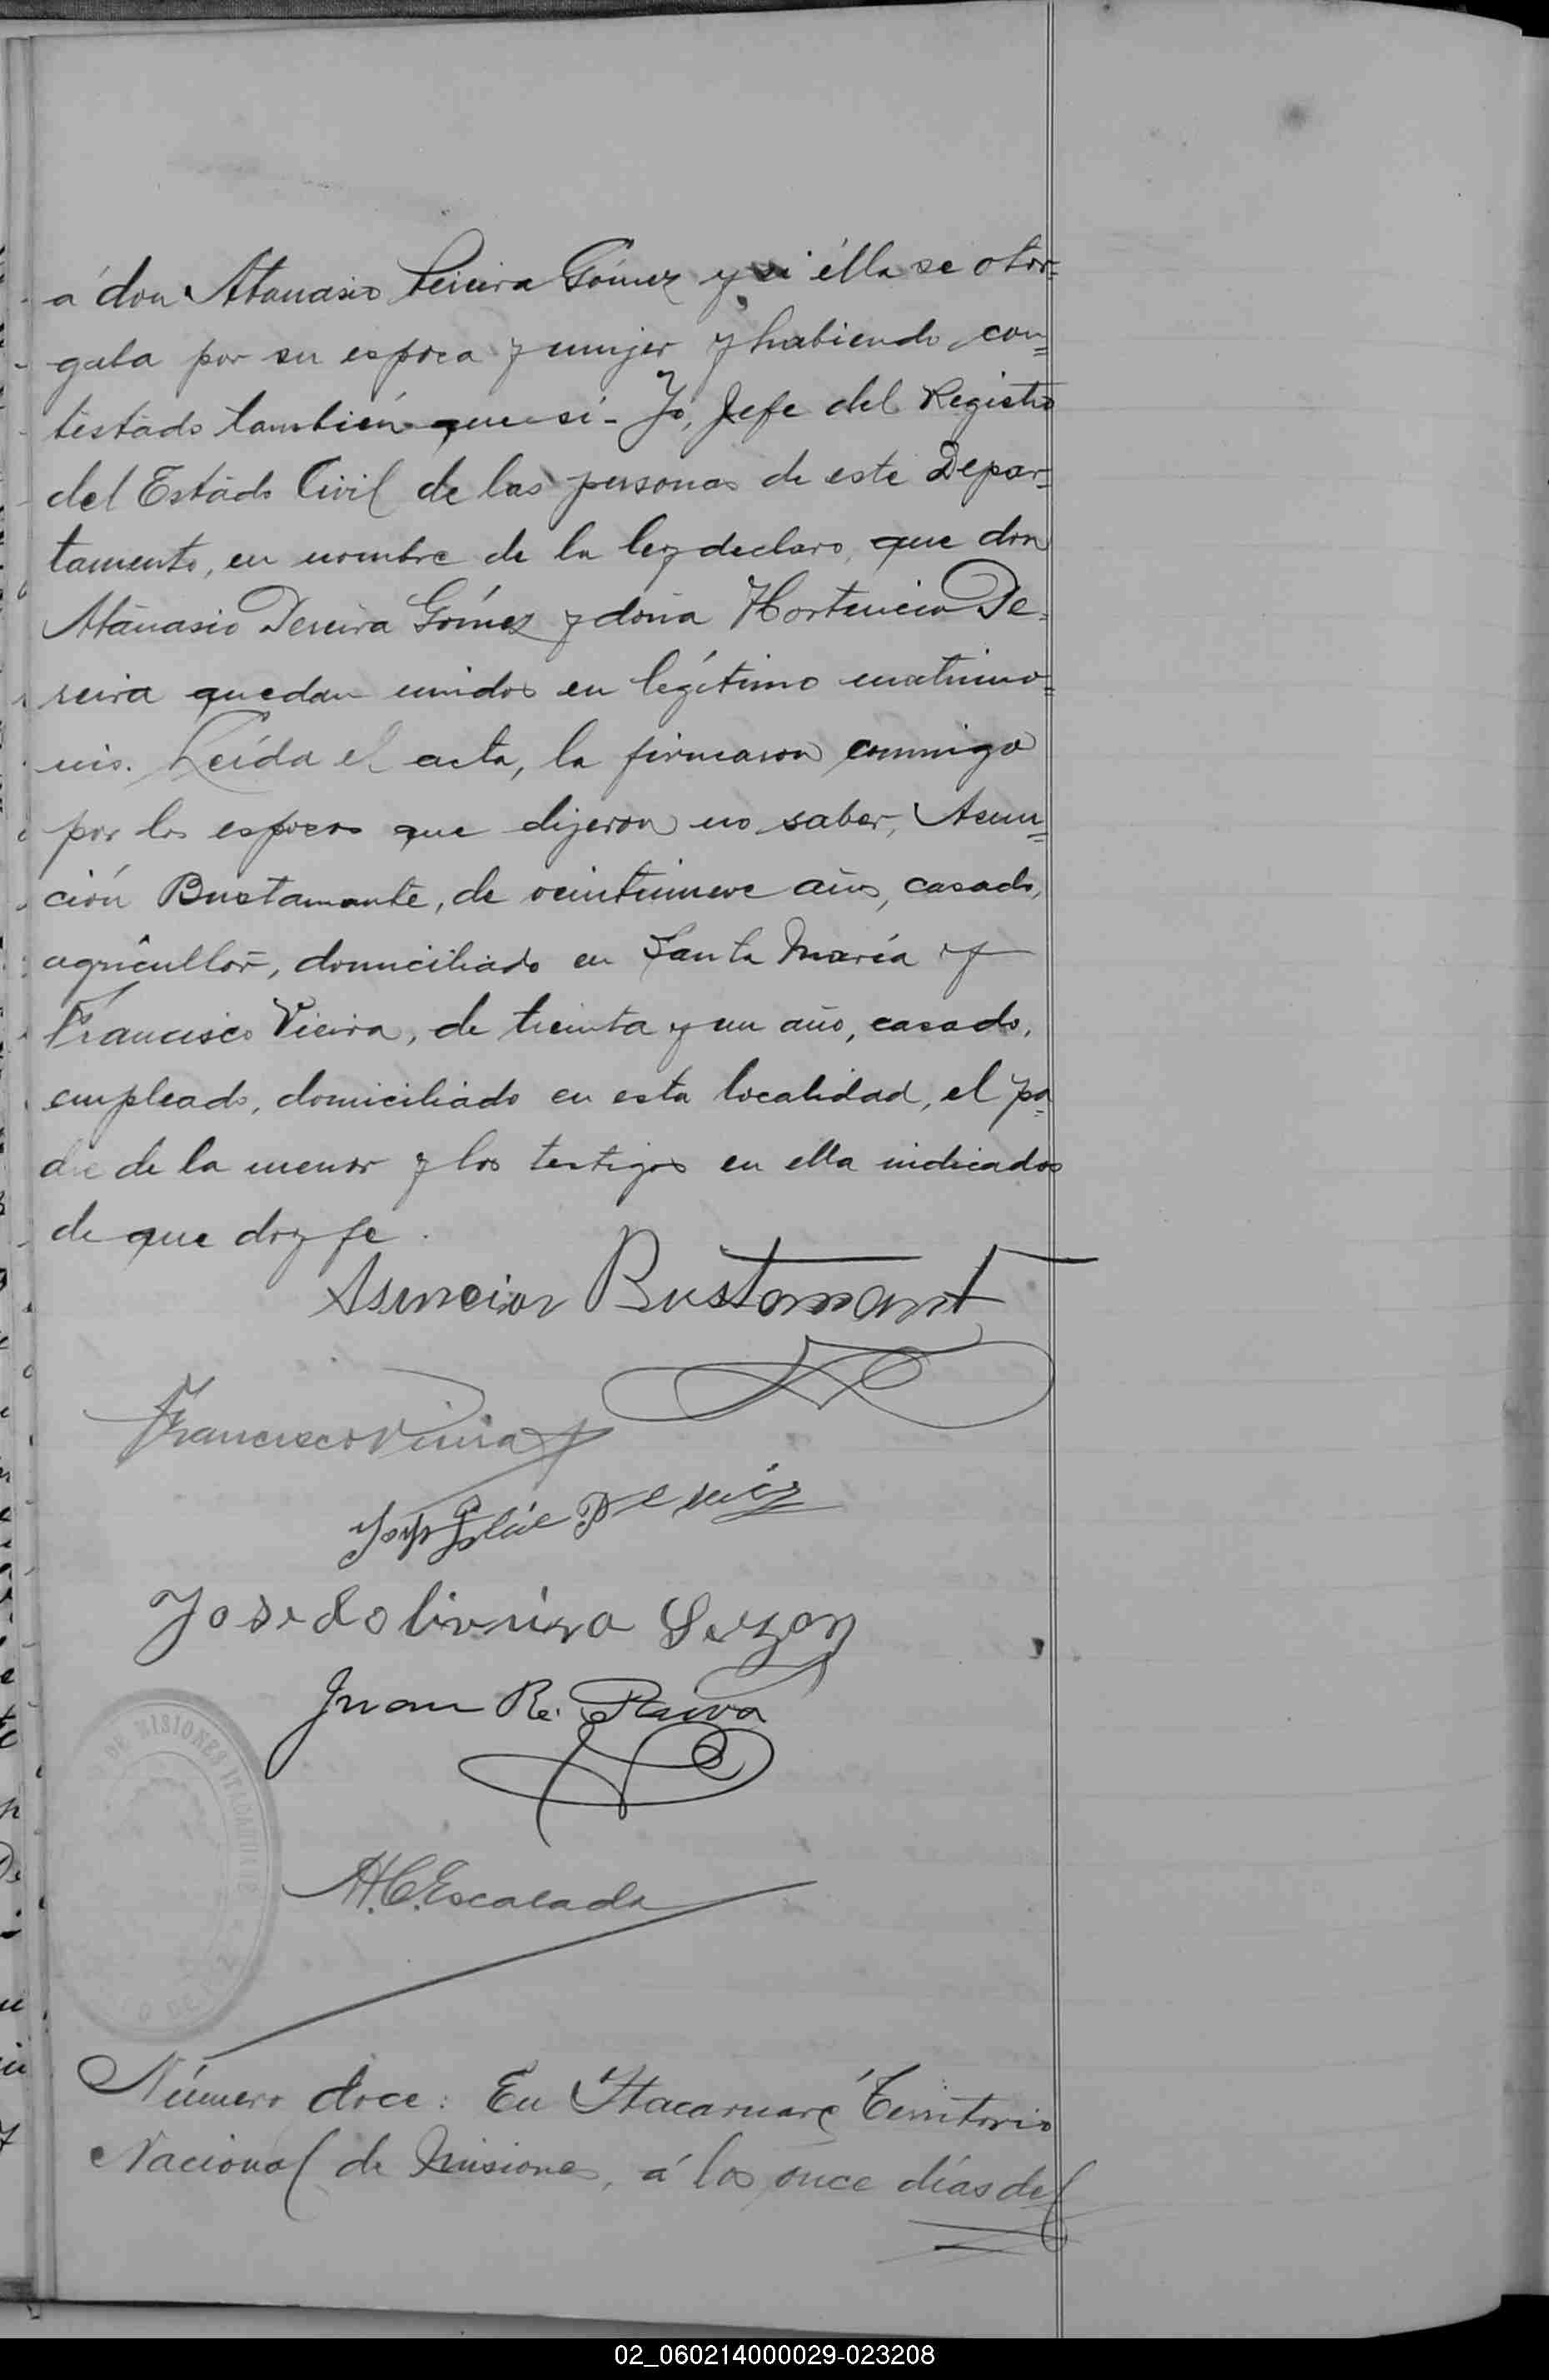 á don Atanasio Pereira Gómez y si élla se otor=
gaba por su esposa y mujer y habiendo con=
testado también que sí - Yo, Jefe del Registro
del Estado Civil de las personas de este Depar=
tamento, en nombre de la ley declaro, que don
Atanasio Pereira Gómez y doña Hortencia Pe=
reira quedan unidos en legítimo matrimo=
nio. Leída el acta, la firmaron conmigo
por los esposos que dijeron no saber, Asun=
ción Bustamante, de veintinueve años, casado,
agricultor, domiciliado en Santa María y
Francisco Vieira, de treinta y un año, casado,
empleado, domiciliado en esta localidad, el pa=
dre de la menor y los testigos en ella indicados
de que doy fe.
Asuncion Bustamant
Francisco Vieira
Jose d Oliveira
Juan R. Paiva
H. C. Escalada
DE MISIONES ITACARUARE
Número doce: En Itacaruaré Territorio
Nacional de Misiones, á los once días del
02_060214000029-023208